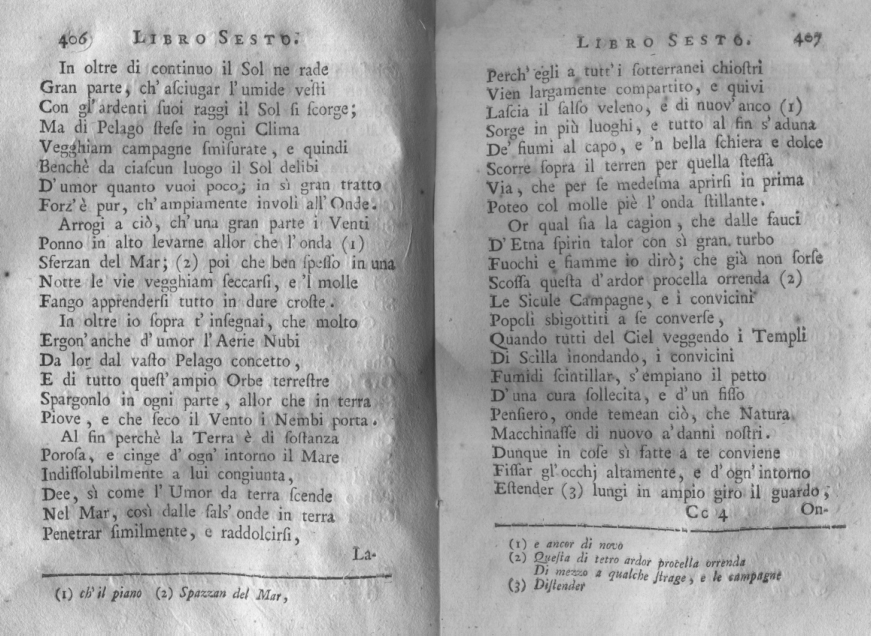 406 LIBRO SESTO.
In oltre di continuo il Sol ne rade
Gran parte, ch' aſciugar l' umide veſti
Con gl' ardenti ſuoi raggi il Sol ſi ſcorge;
Ma di Pelago ſteſe in ogni Clima
Vegghiam campagne ſmiſurate, e quindi
Benchè da ciaſcun luogo il Sol delibi
D' umor quanto vuoi poco; in sì gran tratto
Forz' è pur, ch' ampiamente involi all' Onde.
Arrogi a ciò, ch' una gran parte i Venti
Ponno in alto levarne allor che l' onda (1)
Sferzan del Mar; (2) poi che ben ſpeſſo in una
Notte le vie vegghiam ſeccarſi, e 'l molle
Fango apprenderſi tutto in dure croſte.
In oltre io ſopra t' inſegnai, che molto
Ergon' anche d' umor l' Aerie Nubi
Da lor dal vaſto Pelago concetto,
E di tutto queſt' ampio Orbe terreſtre
Spargonlo in ogni parte, allor che in terra
Piove, e che ſeco il Vento i Nembi porta.
Al fin perchè la Terra è di ſoſtanza
Poroſa, e cinge d' ogn' intorno il Mare
Indiſſolubilmente a lui congiunta,
Dee, sì come l' Umor da terra ſcende
Nel Mar, così dalle ſalſ' onde in terra
Penetrar ſimilmente, e raddolcirſi,
La-
(1) ch' il piano (2) Spazzan del Mar,
LIBRO SESTO. 407
Perch' egli a tutt' i ſotterranei chioſtri
Vien largamente compartito, e quivi
Laſcia il ſalſo veleno, e di nuov' anco (1)
Sorge in più luoghi, e tutto al fin s' aduna
De' fiumi al capo, e 'n bella ſchiera e dolce
Scorre ſopra il terren per quella ſteſſa
Via, che per ſe medeſma aprirſi in prima
Poteo col molle piè l' onda ſtillante.
Or qual ſia la cagion, che dalle fauci
D' Etna ſpirin talor con sì gran turbo
Fuochi e fiamme io dirò; che già non ſorſe
Scoſſa queſta d' ardor procella orrenda (2)
Le Sicule Campagne, e i convicini
Popoli sbigottiti a ſe converſe,
Quando tutti del Ciel veggendo i Templi
Di Scilla inondando, i convicini
Fumidi ſcintillar, s' empiano il petto
D' una cura ſollecita, e d' un fiſſo
Penſiero, onde temean ciò, che Natura
Macchinaſſe di nuovo a' danni noſtri.
Dunque in coſe sì fatte a te conviene
Fiſſar gl' occhj altamente, e d' ogn' intorno
Eſtender (3) lungi in ampio giro il guardo,
Cc 4 On-
(1) e ancor di novo
(2) Queſta di tetro ardor procella orrenda
Di mezzo a qualche ſtrage, e le campagne
(3) Diſtender